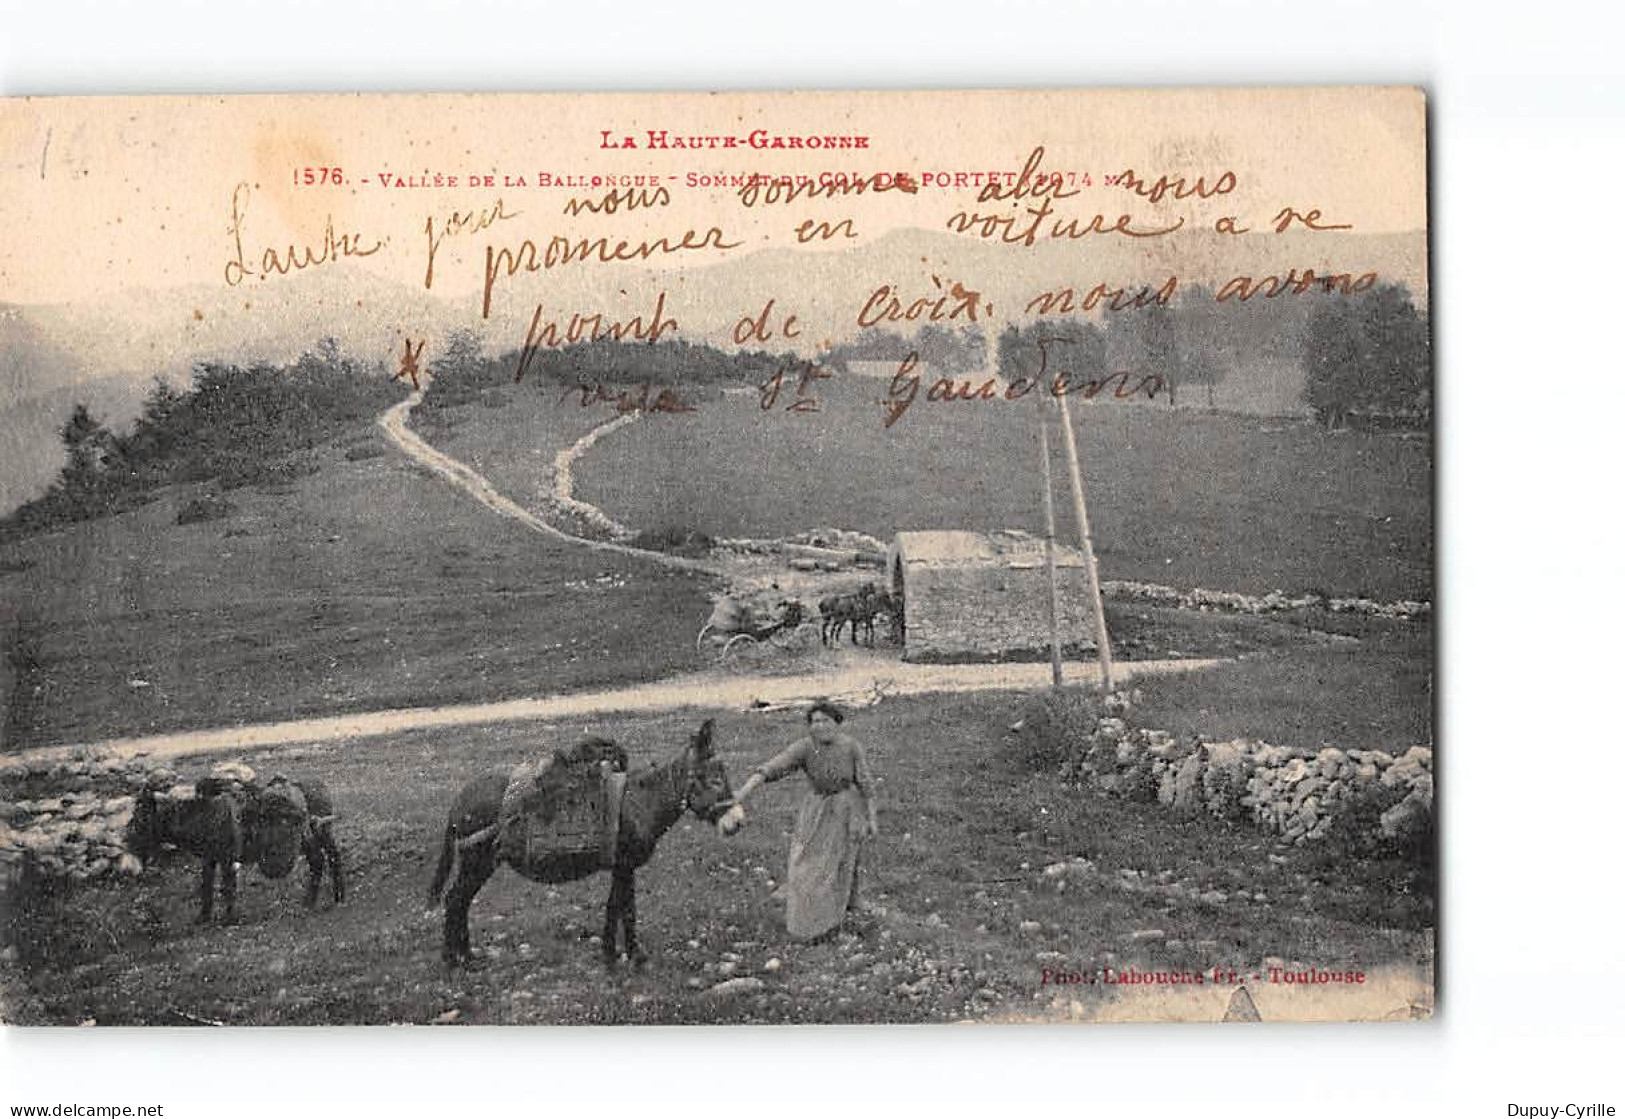 LA HAUTE-GARONNE
1576. - VALLÉE DE LA BALLONGUE - SOMMET DU COL DE PORTET 1074 M
L'autre jour nous somme aler nous
promener en voiture a se
point de croix. nous avons
vue St Gaudens
Phot. Labouche Fr. - Toulouse
delcampe.net
Dupuy-Cyrille